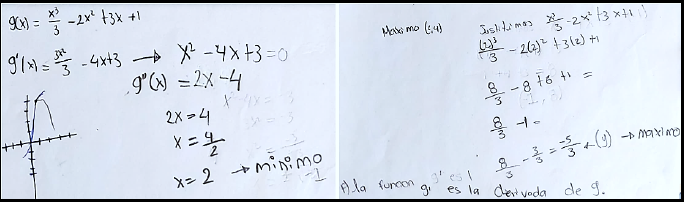 g(x) = x³/3 - 2x² + 3x + 1
g'(x) = 3x²/3 - 4x + 3 → x² - 4x + 3 = 0
g''(x) = 2x - 4
2x = 4
x = 4/2
x = 2 → minimo
Maximo
Sustituimos x³/3 - 2x² + 3x + 1
(2)³/3 - 2(2)² + 3(2) + 1
8/3 - 8 + 6 + 1 =
8/3 - 1 =
8/3 - 3/3 = -5/3 ← (y) → maximo
la funcion g' es la derivada de g.